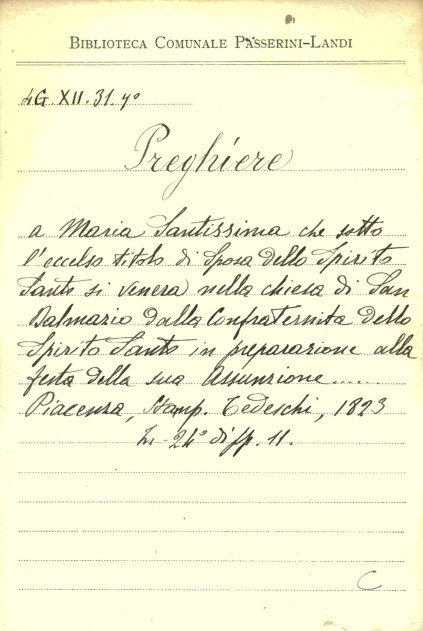 BIBLIOTECA COMUNALE PASSERINI-LANDI
4G.XII.31.7°
Preghiere
a Maria Santissima che sotto
l'eccelso titolo di Sposa dello Spirito
Santo si venera nella chiesa di San
Dalmazio dalla Confraternita dello
Spirito Santo in preparazione alla
festa della sua Assunzione.....
Piacenza, Stamp. Tedeschi, 1823
in-24° di pp. 11.
C